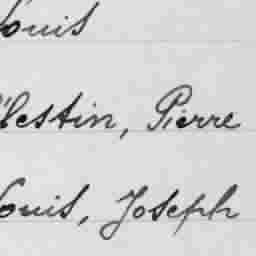 Louis
Célestin, Pierre
Louis, Joseph